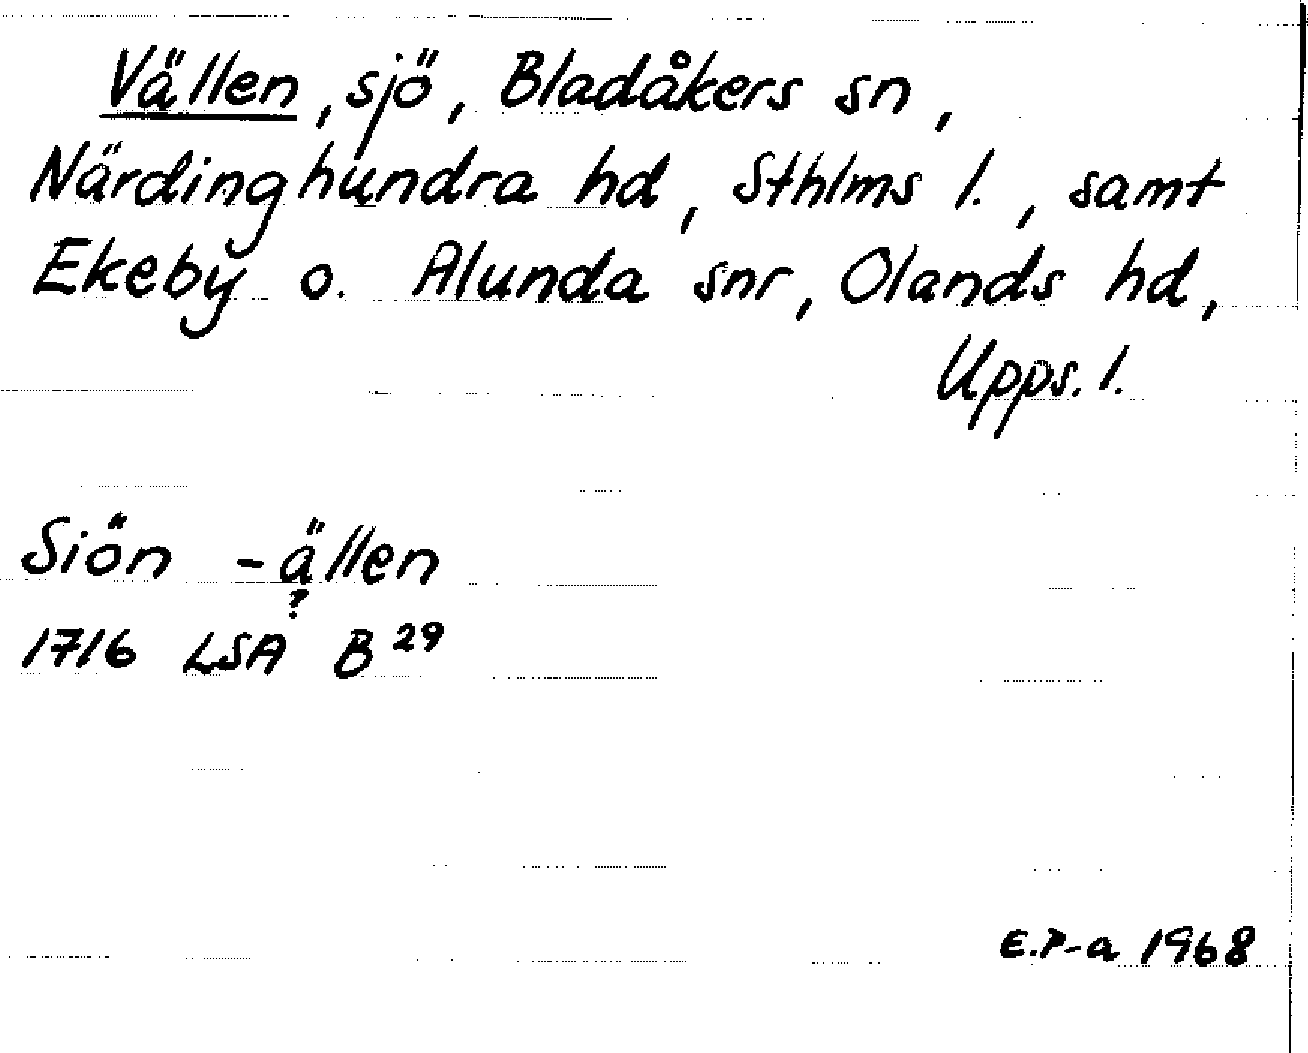 Vällen, sjö, Bladåkers sn,
Närdinghundra hd, Sthlms l., samt
Ekeby o. Alunda snr, Olands hd,
Upps. l.
Siön -ällen
?
1716 LSA B 29
E.P-a 1968